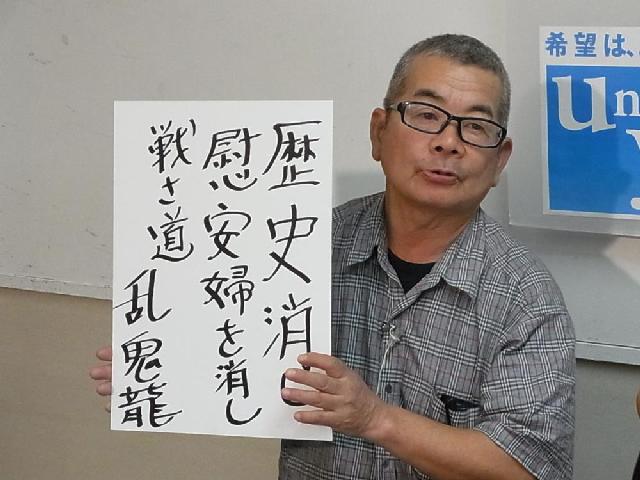 歴史消し
慰安婦を消し
戦さ道 乱鬼龍
希望は、
Un